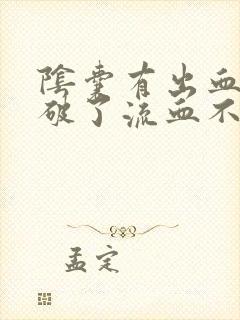 陰囊有出血
破了流血不
孟定